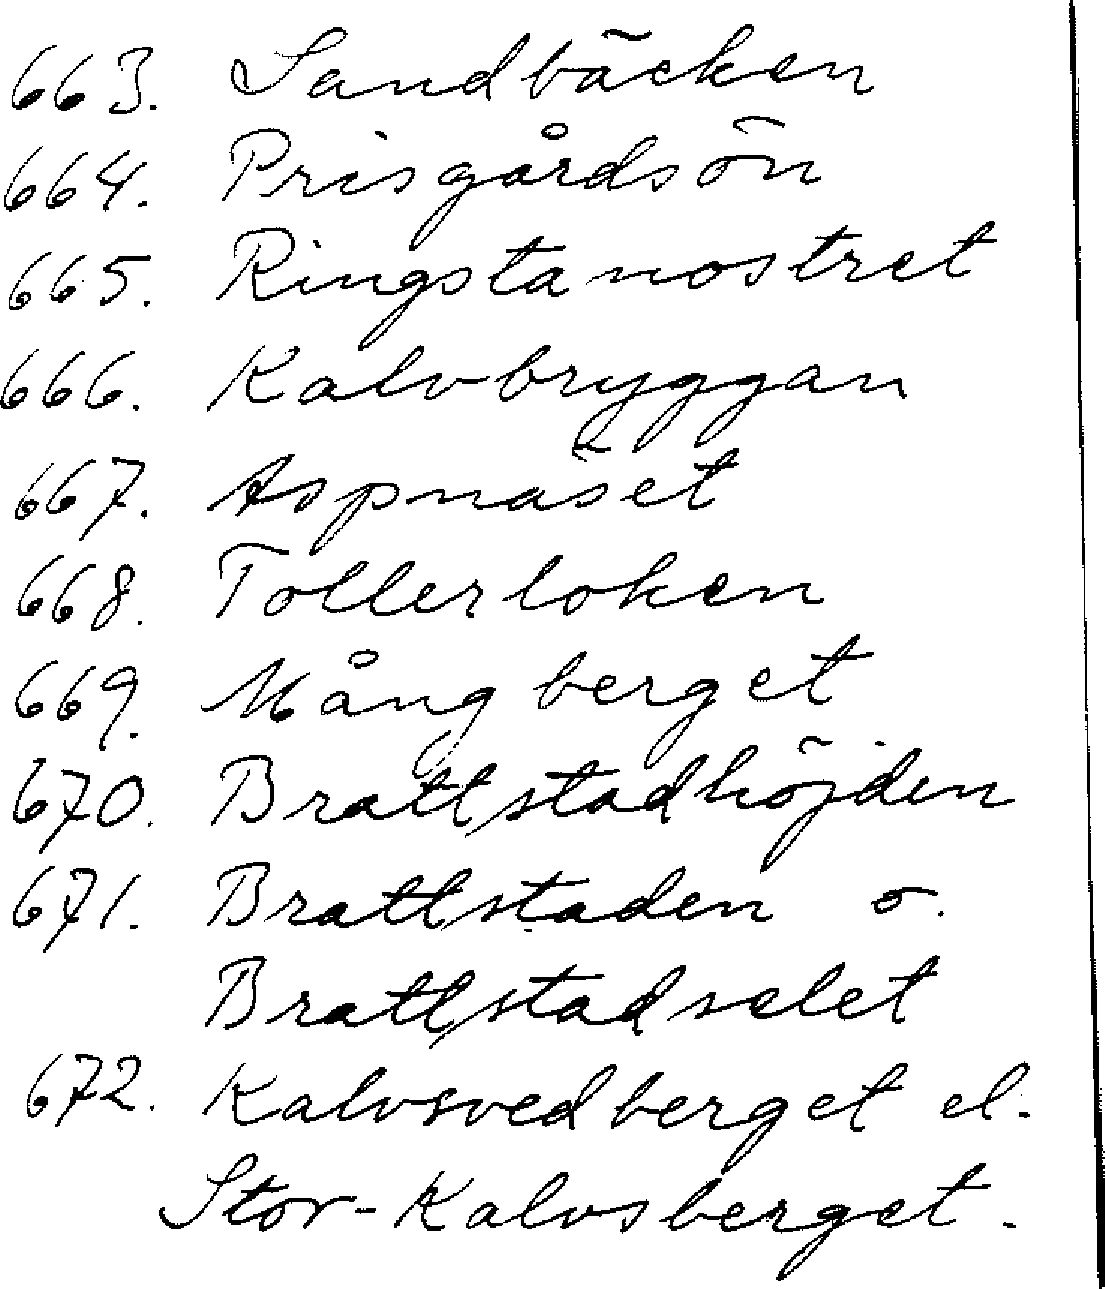 663. Sandbäcken
664. Prisgårdsön
665. Ringstanostret
666. Kalvbryggan
667. Aspnäset
668. Tollerloken
669. Mångberget
670. Brattstadhöjden
671. Brattstaden o.
Brattstadselet
672. Kalvsvedberget el.
Stor-Kalvsberget.